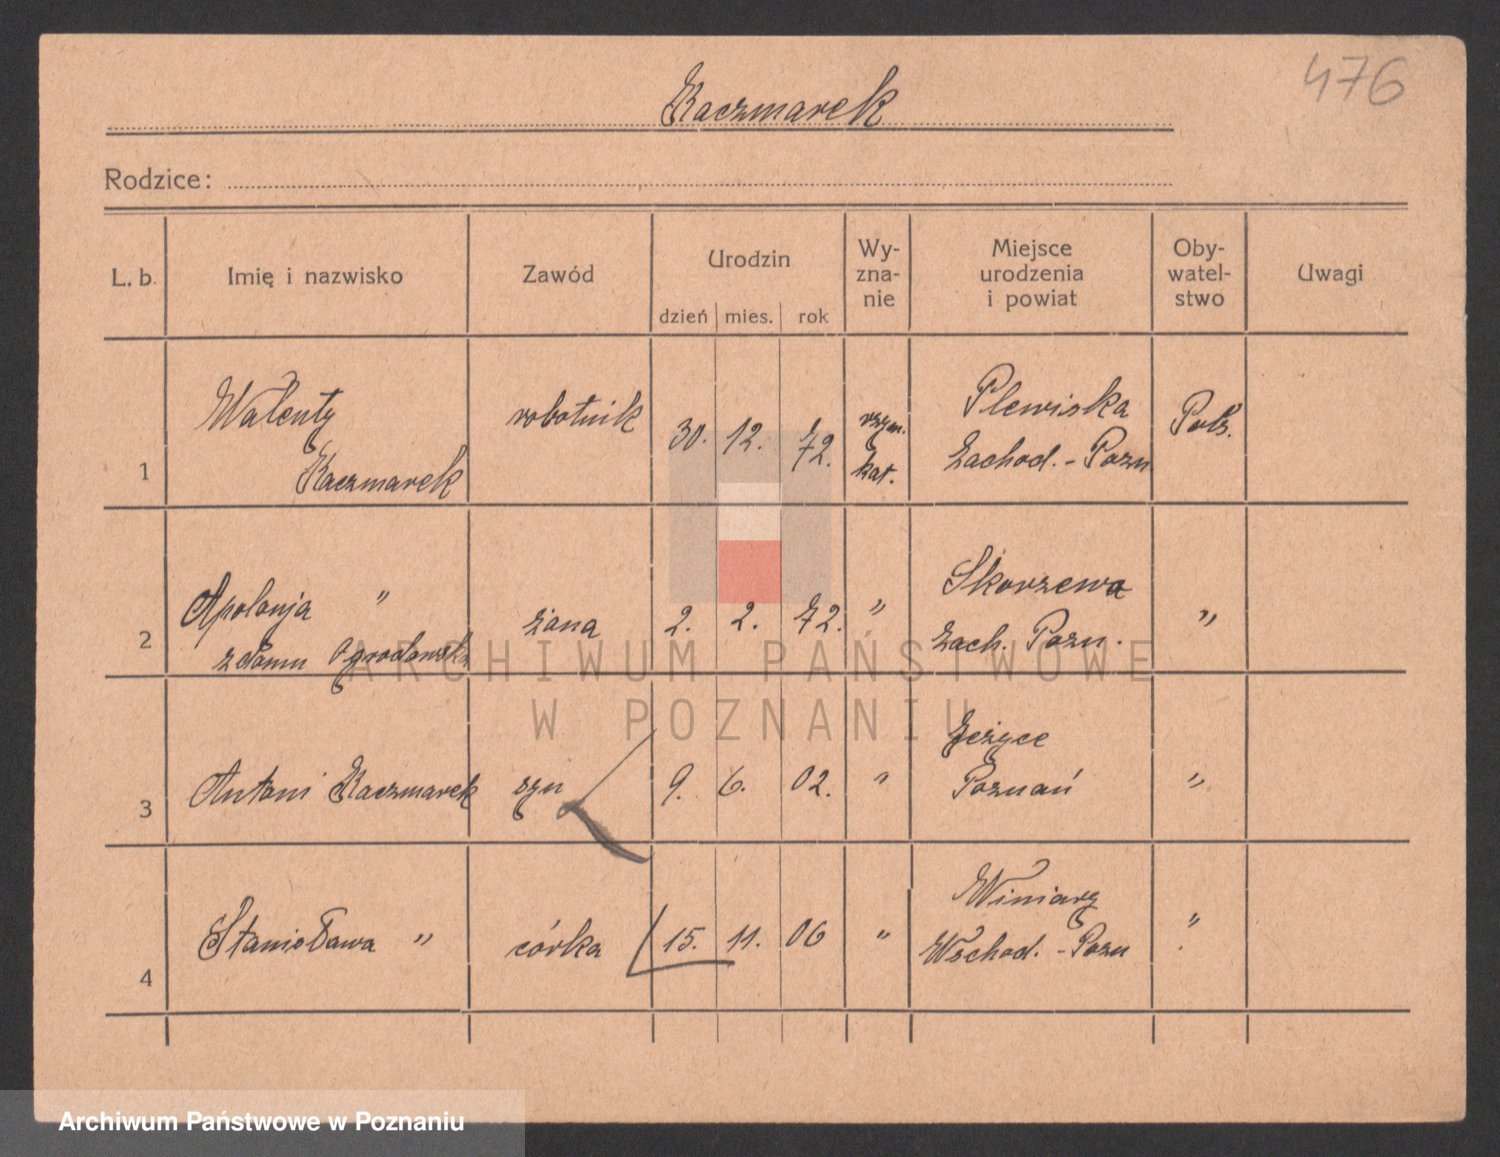 476
Kaczmarek
Rodzice:
L. b. Imię i nazwisko Zawód Urodzin Wy-zna-nie Miejsce urodzenia i powiat Oby-watel-stwo Uwagi
dzień mies. rok
1 Walenty Kaczmarek robotnik 30. 12. 72. rzym. kat. Plewiska Zachod. - Pozn Pols.
2 Apolonja " z domu Ogrodowska żona 2. 2. 72. " Skorzewo Zach. Pozn. "
3 Antoni Kaczmarek syn 9. 6. 02. " Jeżyce Poznań "
4 Stanisława " córka 15. 11. 06 " Winiary Wschod. - Pozn "
ARCHIWUM PAŃSTWOWE
W POZNANIU
Archiwum Państwowe w Poznaniu